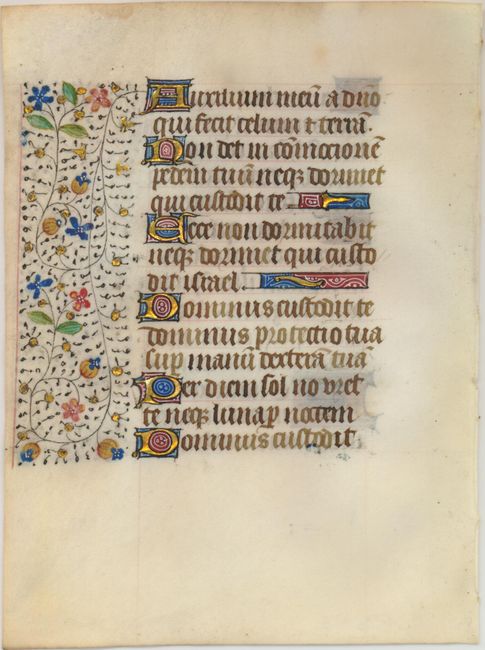 Auxilium meū a dn̄o
qui fecit celum ⁊ terrā.
Non det in cōmocionē
pedem tuū neqꝫ dormiet
qui custodit te
Ecce non dormitabit
neqꝫ dormiet qui custo
dit israel
Dominus custodit te
dominus protectio tua
sup manū dexterā tuā
Per diem sol nō vret
te neqꝫ luna ꝑ noctem
Dominus custodit